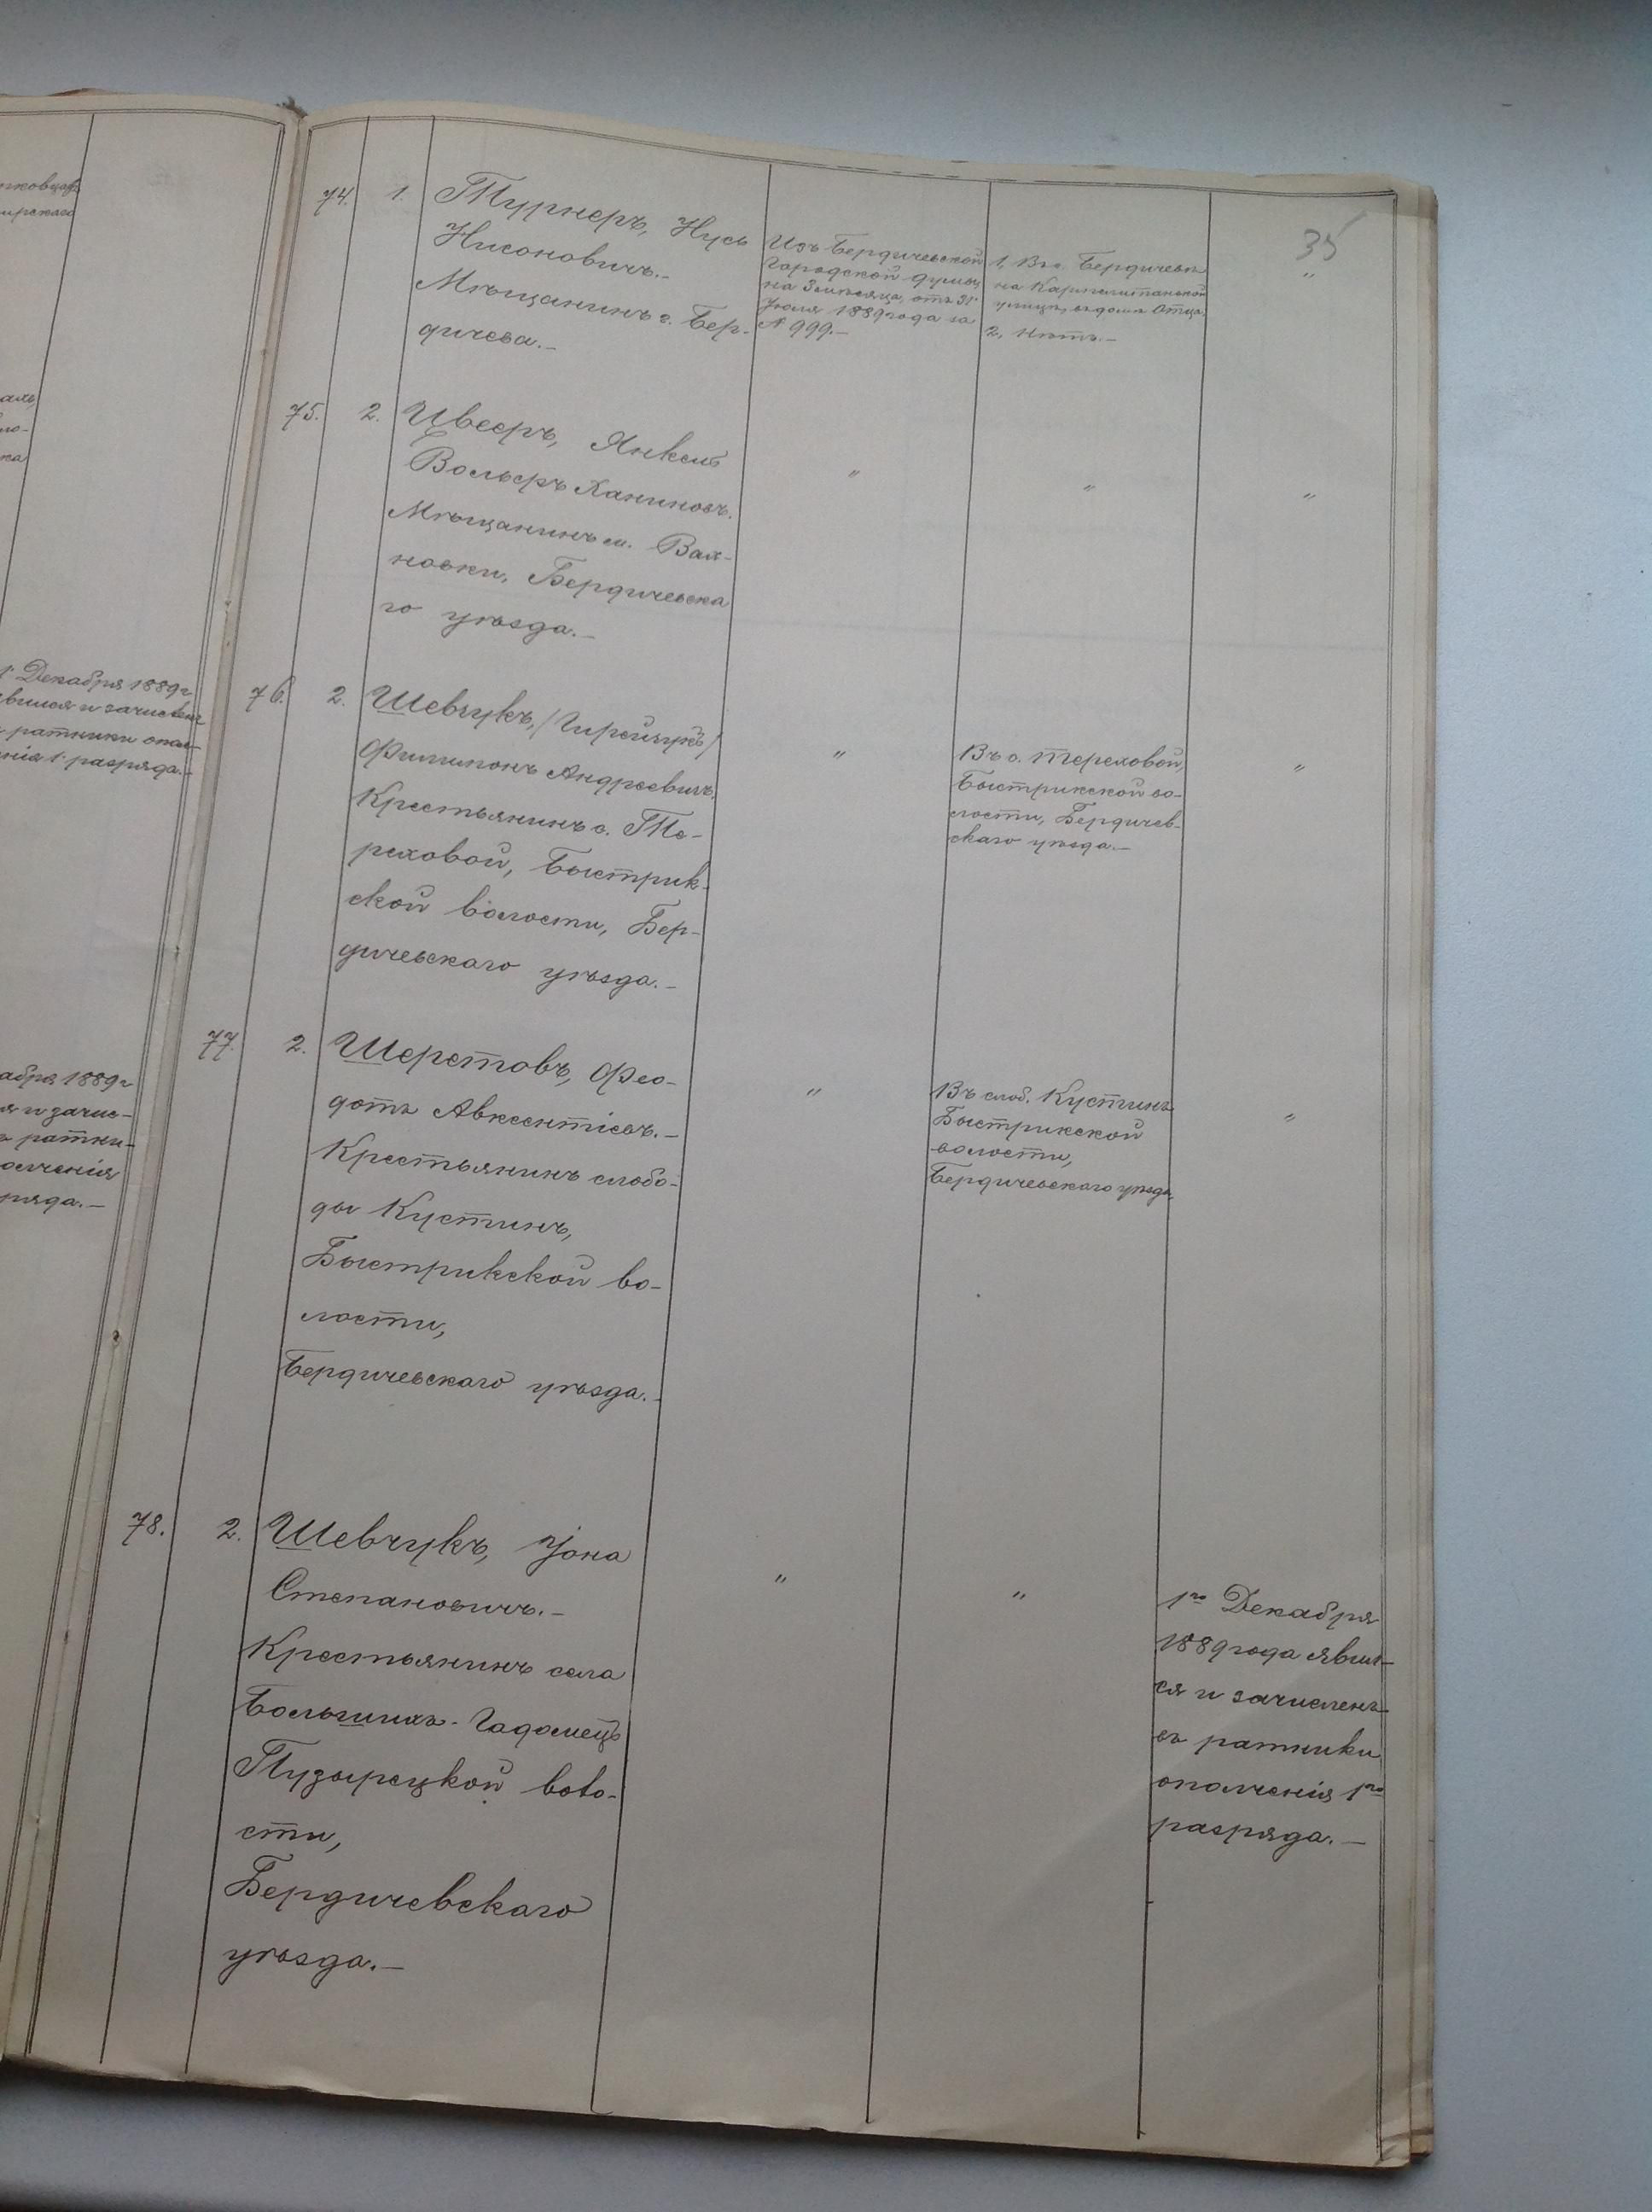 35
1. Декабря 1889 г
ратники опол-
1. разряда.
абря 1889 г
и зачис-
ратни-
олченія
ряда.
74. 1. Турнеръ, Нусь
Нисоновичъ.-
Мѣщанинъ г. Бер-
дичева.-
Изъ Бердичевской
Городской Думы,
на 3 мѣсяца, отъ 31
Іюля 1889 года за
№ 999.-
1, Въ г. Бердичевѣ
на
улицѣ, въ домѣ Отца.
2, Нѣтъ.-
"
75. 2. Цвееръ, Янкель
Вольфъ Ханиновъ.
Мѣщанинъ м. Вах-
новки, Бердичевска
го уѣзда.-
"
"
"
76. 2. Шевчукъ,
Филимонъ Андреевичъ.
Крестьянинъ с. Те-
реховой, Быстрик-
ской волости, Бер-
дичевскаго уѣзда.-
"
Въ с. Тереховой,
Быстрикской во-
лости, Бердичев-
скаго уѣзда.-
"
77. 2. Шерстовъ, Фео-
дотъ Авксентіевъ.-
Крестьянинъ слобо-
ды Кустинъ,
Быстрикской во-
лости,
Бердичевскаго уѣзда.-
"
Въ слоб. Кустинъ
Быстрикской
волости,
Бердичевскаго уѣзда.
"
78. 2. Шевчукъ, Іона
Степановичъ.-
Крестьянинъ села
Большихъ-Гадомецъ
Пузырецкой воло-
сти,
Бердичевскаго
уѣзда.-
"
"
1го Декабря
1889 года явил-
ся и зачисленъ
въ ратники
ополченія 1го
разряда.-